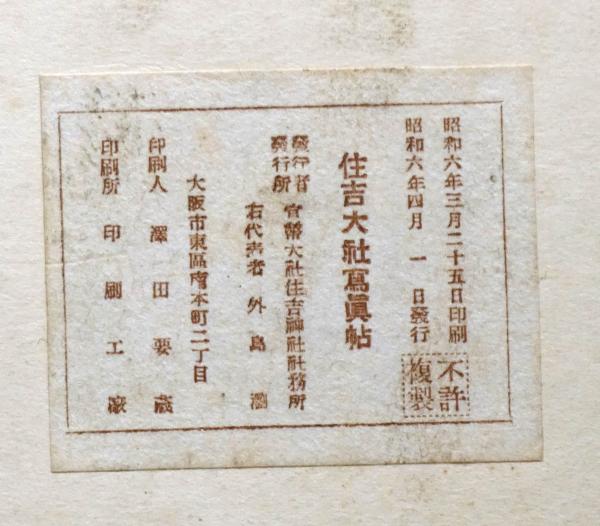 昭和六年三月二十五日印刷
昭和六年四月一日發行
不許
複製
住吉大社寫眞帖
發行者
發行所
官幣大社住吉神社社務所
右代表者 外島瀏
大阪市東區南本町二丁目
印刷人 澤田要藏
印刷所 印刷工廠